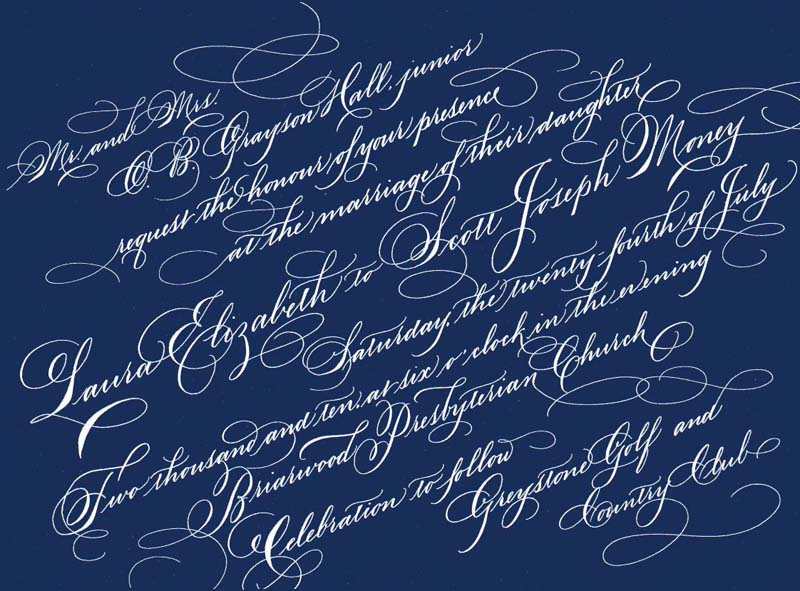 Mr. and Mrs.
O. B. Grayson Hall, junior
request the honour of your presence
at the marriage of their daughter
Laura Elizabeth to Scott Joseph Money
Saturday, the twenty-fourth of July
Two thousand and ten, at six o'clock in the evening
Briarwood Presbyterian Church
Celebration to follow
Greystone Golf and
Country Club